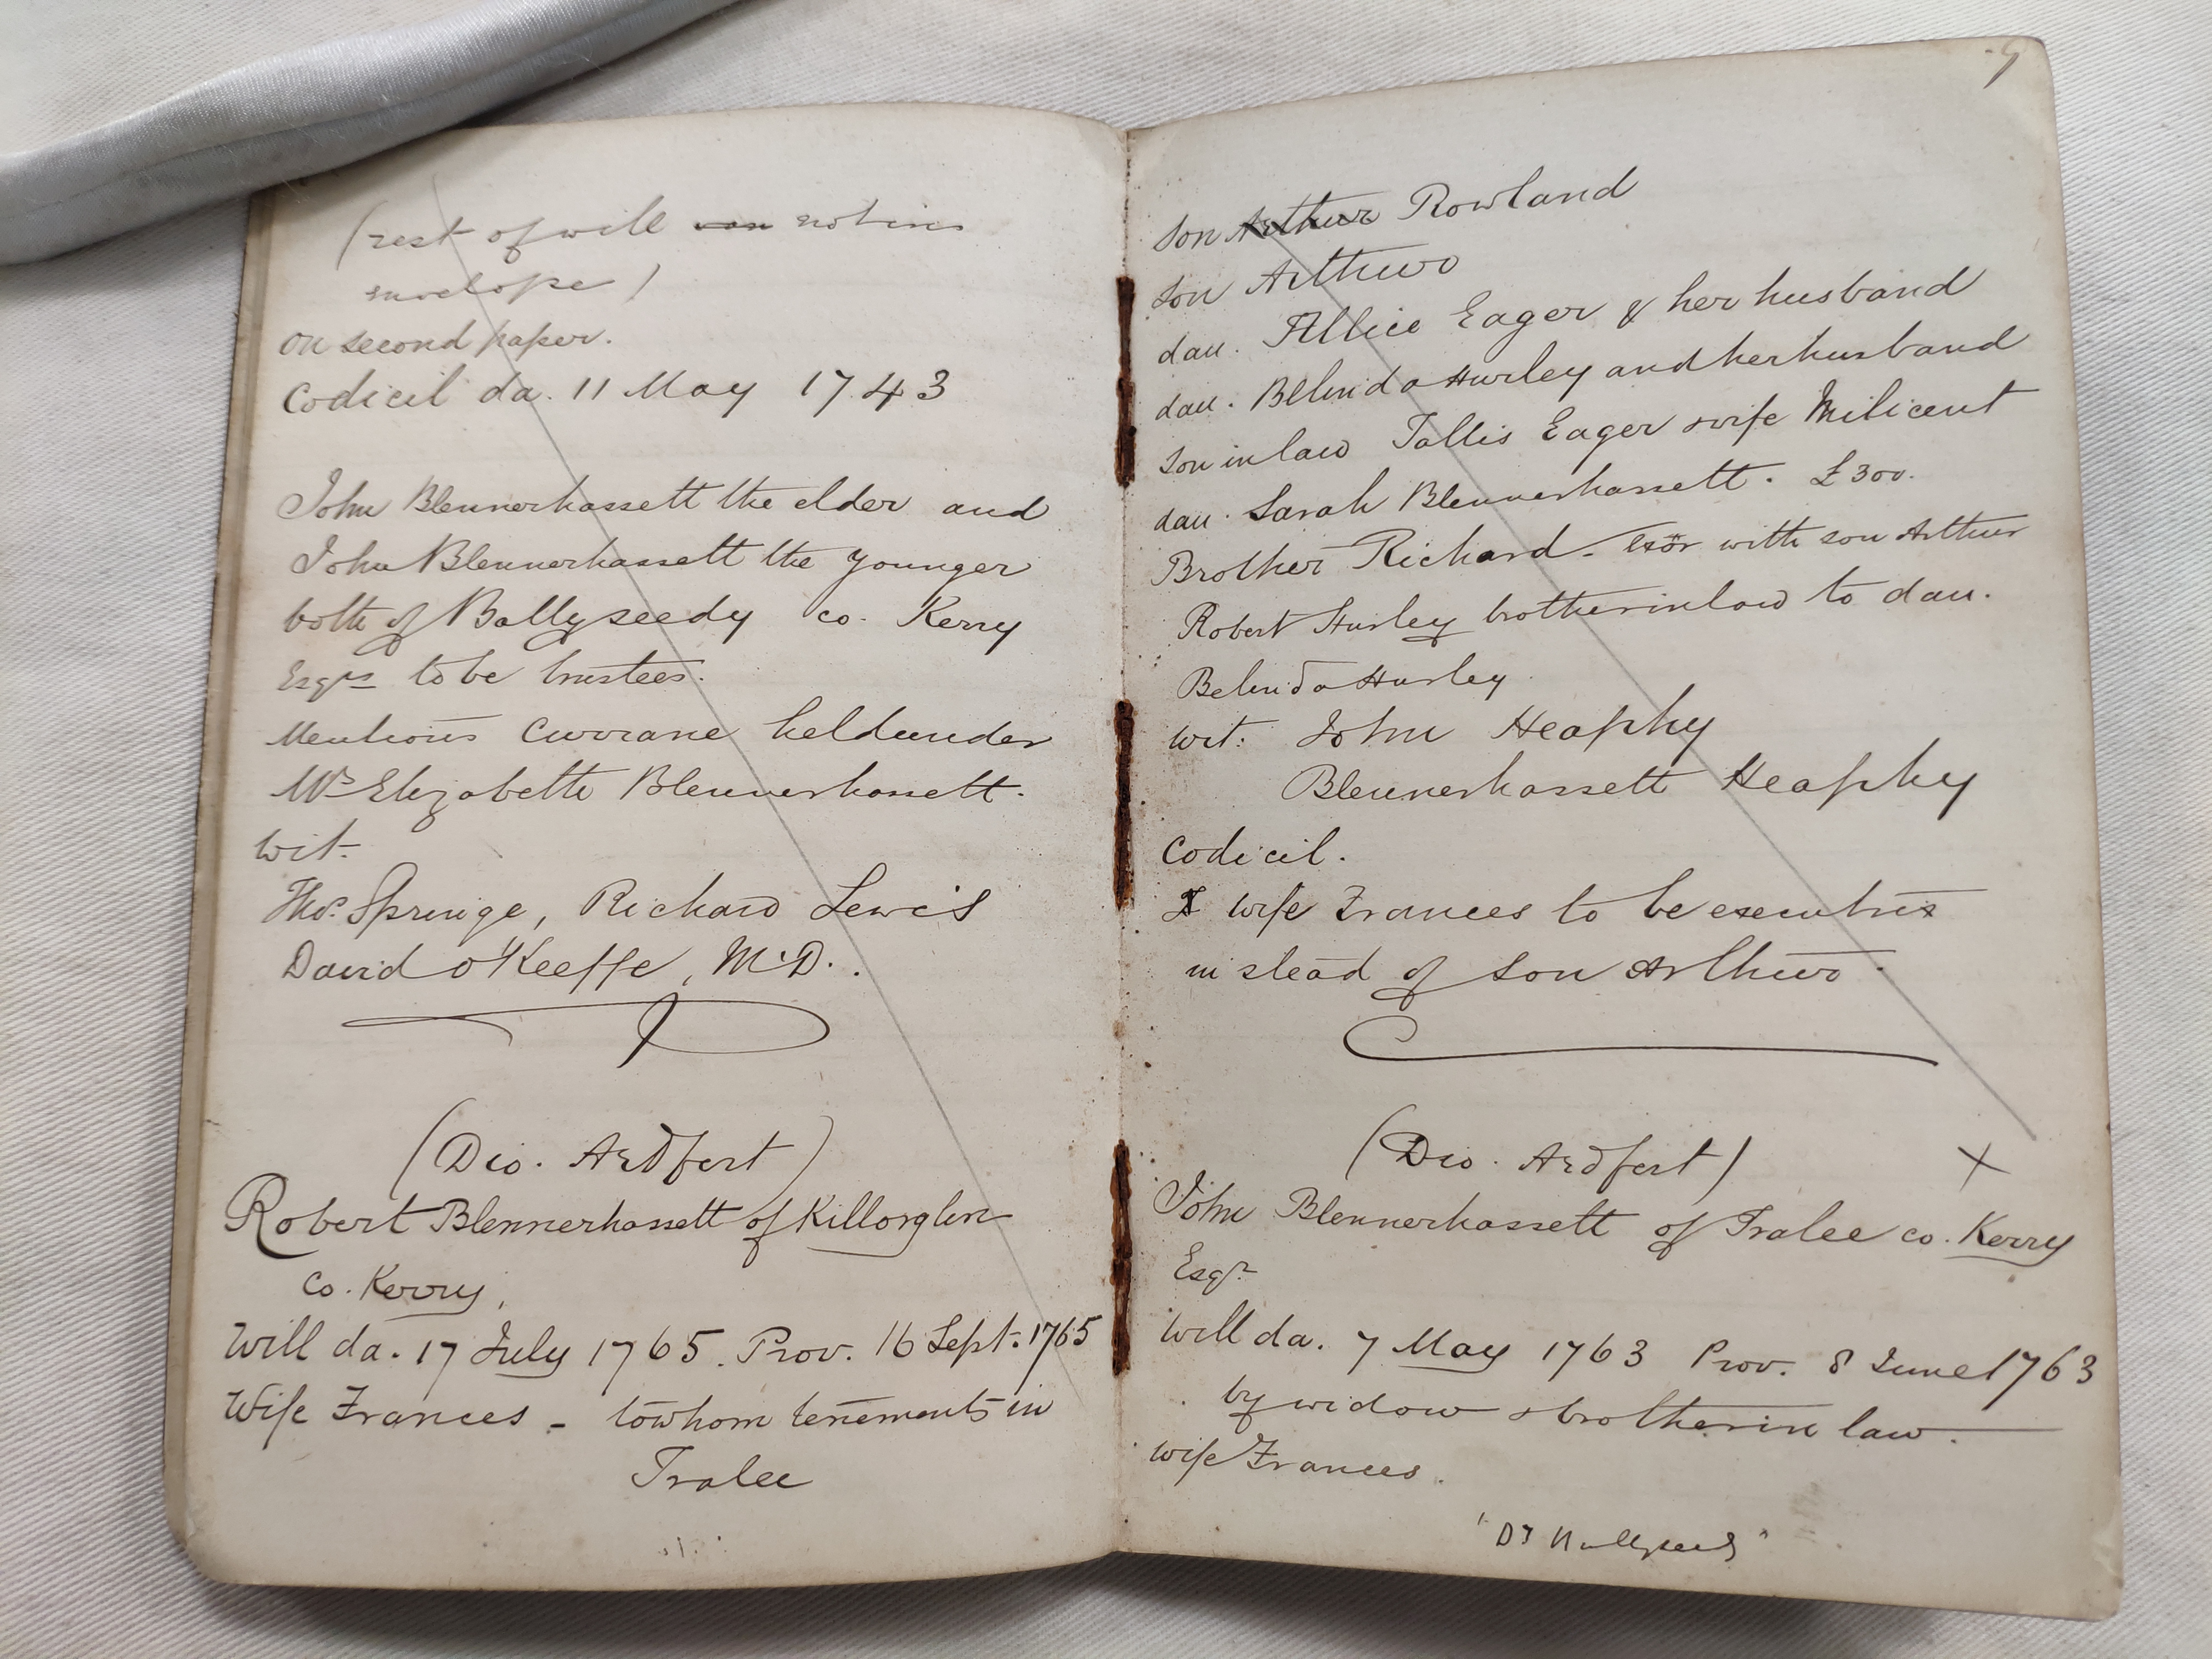 (rest of will was not in
envelope)
on second paper.
Codicil da. 11 May 1743
John Blennerhassett the elder and
John Blennerhassett the younger
both of Ballyseedy co. Kerry
Esqrs to be trustees.
Mentions Currane held under
Mrs Elizabeth Blennerhassett.
wit.
Thos. Springe, Richard Lewis
David O'Keeffe, M.D.
(Dio. Ardfert)
Robert Blennerhassett of Killorglin
co. Kerry,
Will da. 17 July 1765. Prov. 16 Sept. 1765
Wife Frances - to whom tenements in
Tralee
9
son Arthur Rowland
son Arthur
dau. Allice Eager & her husband
dau. Belinda Hurley and her husband
son in law Tallis Eager & wife Milicent
dau. Sarah Blennerhassett. £300.
Brother Richard - Exor with son Arthur
Robert Hurley brother in law to dau.
Belinda Hurley
wit: John Heaphy
Blennerhassett Heaphy
Codicil.
wife Frances to be executrix
instead of son Arthur.
(Dio. Ardfert) X
John Blennerhassett of Tralee co. Kerry
Esqr
Will da. 7 May 1763 Prov. 8 June 1763
by widow & brother in law.
wife Frances.